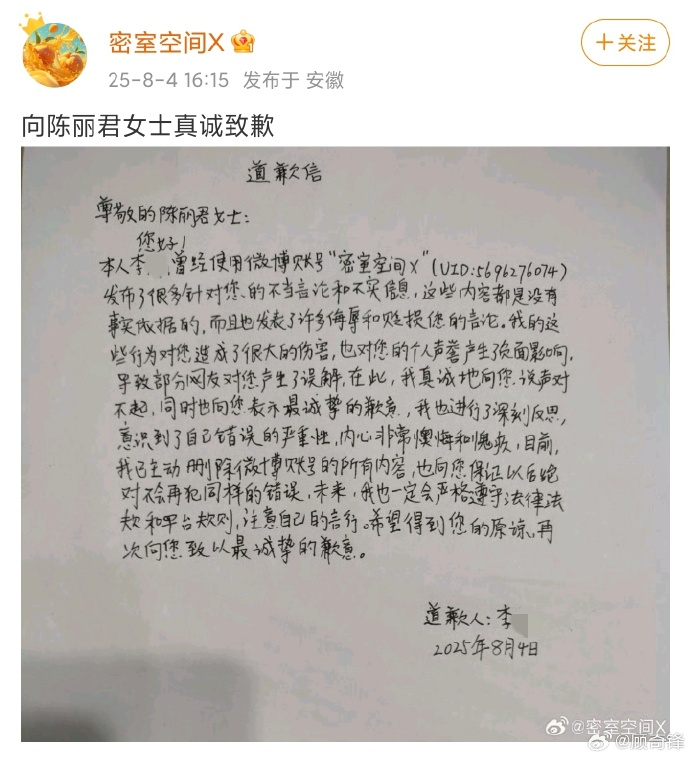 密室空间X
+关注
25-8-4 16:15 发布于 安徽
向陈丽君女士真诚致歉
道歉信
尊敬的陈丽君女士:
您好!
本人李 曾经使用微博账号"密室空间X"(UID:5696276074)
发布了很多针对您的不当言论和不实信息,这些内容都是没有
事实依据的,而且也发表了许多侮辱和贬损您的言论。我的这
些行为对您造成了很大的伤害,也对您的个人声誉产生了负面影响,
导致部分网友对您产生了误解,在此,我真诚地向您说声对
不起,同时也向您表示最诚挚的歉意,我也进行了深刻反思,
意识到了自己错误的严重性,内心非常懊悔和愧疚,目前,
我已主动删除微博账号的所有内容,也向您保证以后绝
对不会再犯同样的错误,未来,我也一定会严格遵守法律法
规和平台规则,注意自己的言行。希望得到您的原谅,再
次向您致以最诚挚的歉意。
道歉人:李
2025年8月4日
@密室空间X
@顾奇锋